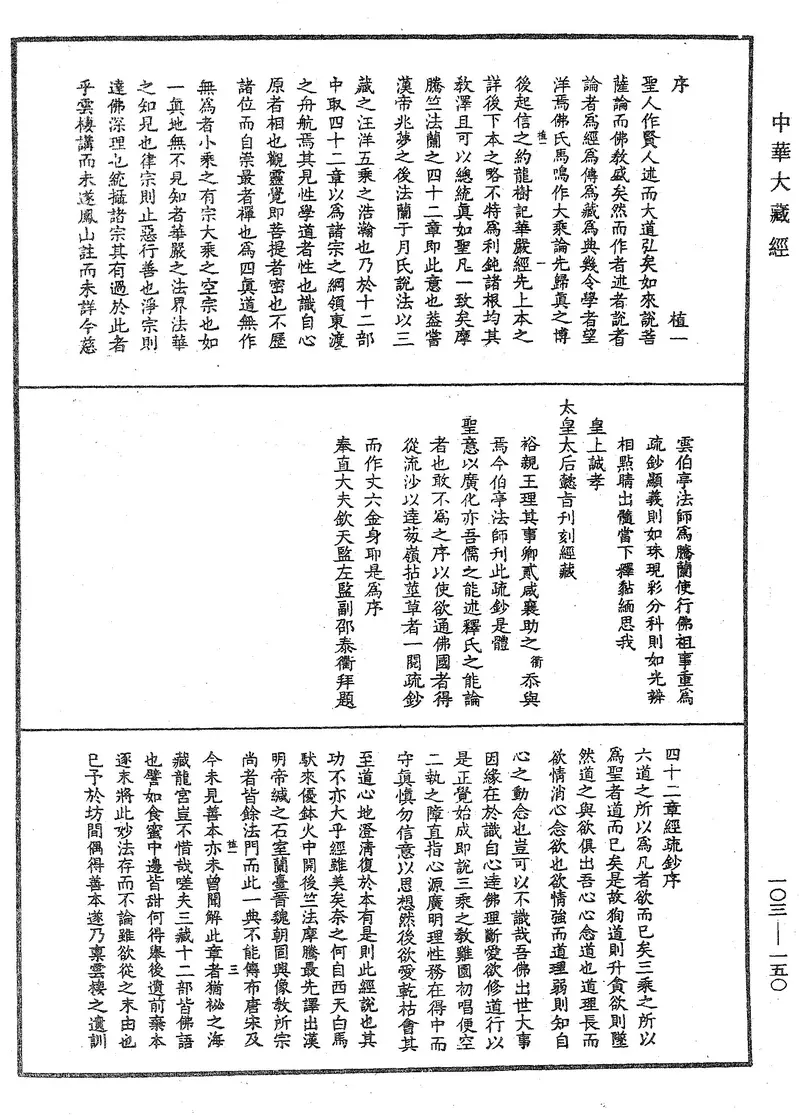 中華大藏經
序　植一
聖人作賢人述而大道弘矣如來說菩
薩論而佛教盛矣然而作者述者說者
論者為經為傳為藏為典幾令學者望
洋焉佛氏馬鳴作大乘論先歸真之博
後起信之約龍樹記華嚴經先上本之
詳後下本之略不特為利鈍諸根均其
教澤且可以總統真如聖凡一致矣摩
騰竺法蘭之四十二章即此意也葢嘗
漢帝兆夢之後法蘭于月氏說法以三
藏之汪洋五乘之浩瀚也乃於十二部
中取四十二章以為諸宗之綱領東渡
之舟航焉其見性學道者性也識自心
原者相也觀靈覺即菩提者密也不歷
諸位而自崇最者禪也為四真道無作
無為者小乘之有宗大乘之空宗也如
一真地無不見知者華嚴之法界法華
之知見也律宗則止惡行善也淨宗則
達佛深理也統攝諸宗其有過於此者
乎雲棲講而未遂鳳山註而未詳今慈
植一　一
雲伯亭法師為騰蘭使行佛祖事重為
疏鈔顯義則如珠現彩分科則如光辨
相點睛出髓當下釋黏緬思我
皇上誠孝
太皇太后懿旨刊刻經藏
裕親王理其事卿貳咸襄助之衢忝與
焉今伯亭法師刊此疏鈔是體
聖意以廣化亦吾儒之能述釋氏之能論
者也敢不為之序以使欲通佛國者得
從流沙以達葱嶺拈莖草者一閱疏鈔
而作丈六金身耶是為序
奉直大夫欽天監左監副邵泰衢拜題
四十二章經疏鈔序
六道之所以為凡者欲而已矣三乘之所以
為聖者道而已矣是故狥道則升貪欲則墜
然道之與欲俱出吾心心念道也道理長而
欲情消心念欲也欲情強而道理弱則知自
心之動念也豈可以不識哉吾佛出世大事
因緣在於識自心達佛理斷愛欲修道行以
是正覺始成即說三乘之教雖園初唱便空
二執之障直指心源廣明理性務在得中而
守真慎勿信意以思想然後欲愛乾枯會其
至道心地澄清復於本有是則此經說也其
功不亦大乎經雖美矣奈之何自西天白馬
馱來優鉢火中開後竺法摩騰最先譯出漢
明帝緘之石室蘭臺晉魏朝固與像教所宗
尚者皆餘法門而此一典不能傳布唐宋及
今未見善本亦未曾聞解此章者猶祕之海
藏龍宮豈不惜哉嗟夫三藏十二部皆佛語
也譬如食蜜中邊皆甜何得舉後遺前棄本
逐末將此妙法存而不論雖欲從之末由也
已予於坊間偶得善本遂乃稟雲棲之遺訓
植一　三
一〇三—一五〇